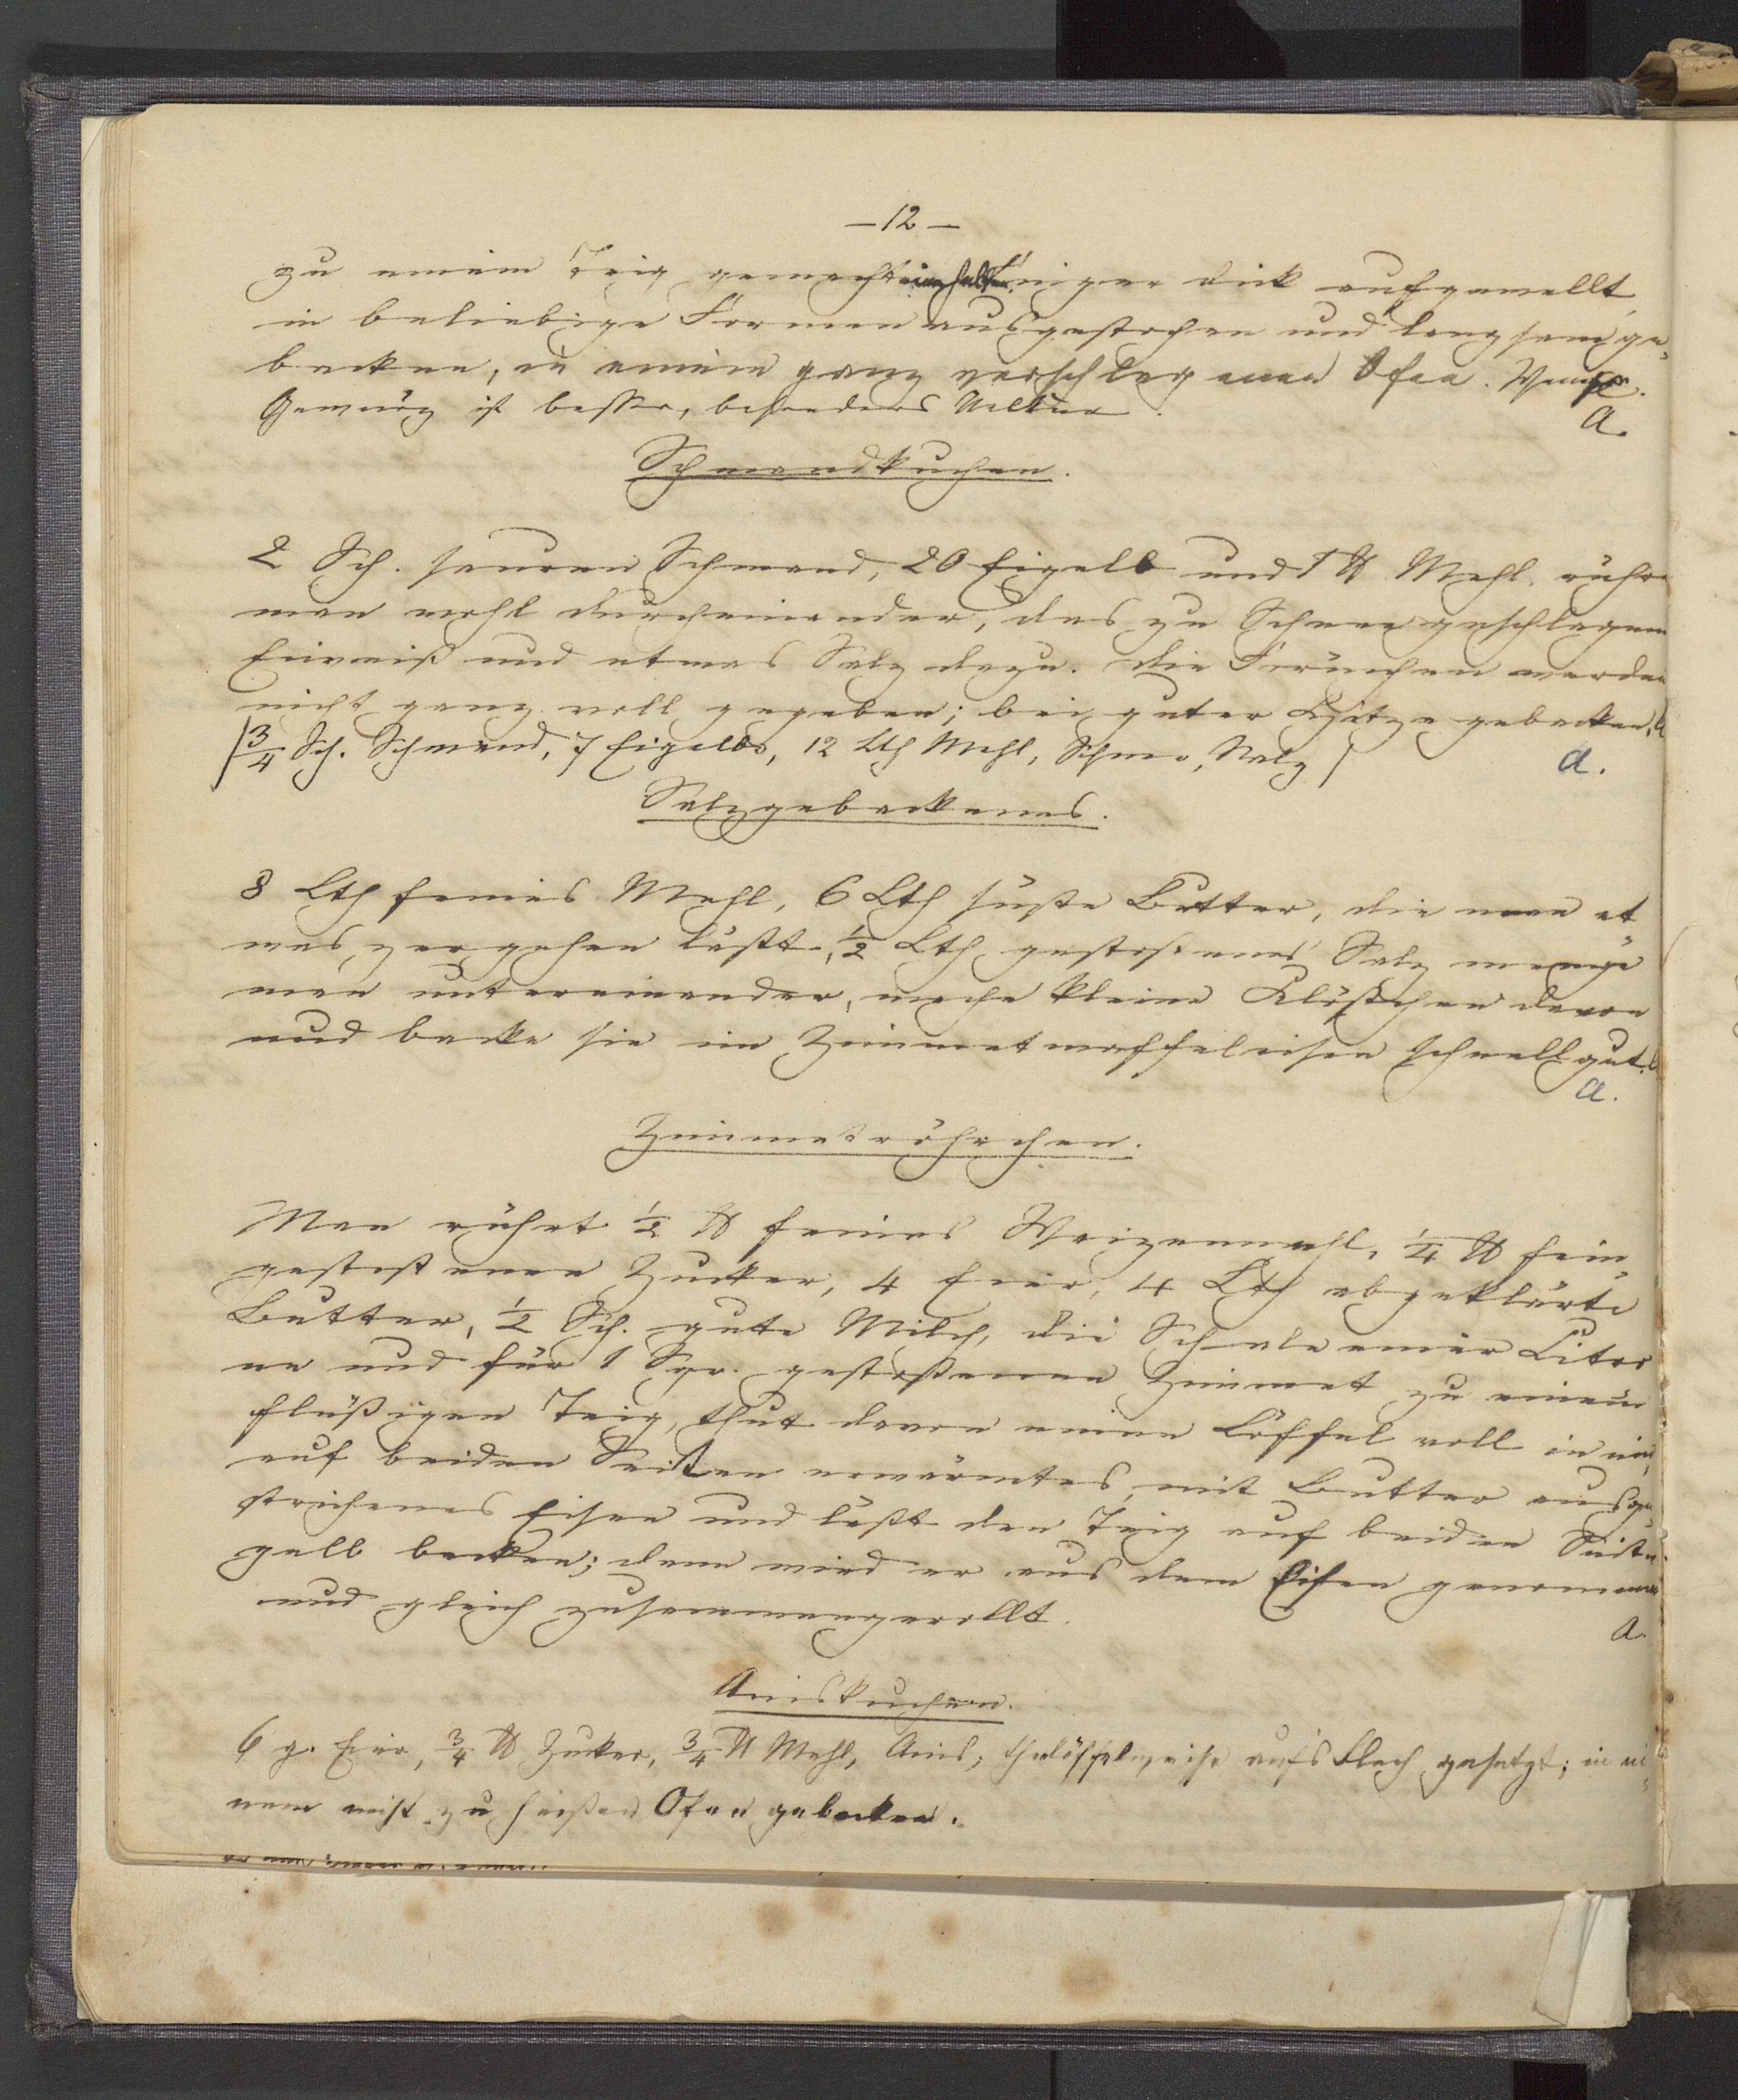 — 12 —
zu einem Teig gemacht, einen halben Finger dick aufgewellt,
in beliebige Formen ausgestochen und langsam ge-
backen, in einem ganz verschlagenen Ofen. Weniger
Gewürz ist besser, besonders Nelken.
A.
Schmandkuchen.
2 Sch. sauren Schmand, 20 Eigelb und 1 ℔ Mehl rühre
man wohl durcheinander, das zu Schnee geschlagene
Eiweiß und etwas Salz dazu. Die Förmchen werden
nicht ganz voll gegeben; bei guter Hitze gebacken.
/3/4 Sch. Schmand, 7 Eigelbs, 12 Lth Mehl, Schnee, Salz/
A.
Salzgebackenes.
8 Lth feines Mehl, 6 Lth süße Butter, die man et
was zergehen läßt, 1/2 Lth gestoßenes Salz menge
man untereinander, mache kleine Klößchen davon
und backe sie im Zimmetwaffeleisen schnell gut.
A.
Zimmetröhrchen.
Man rührt 1/2 ℔ feines Weizenmehl, 1/4 ℔ fein-
gestoßenen Zucker, 4 Eier, 4 Lth abgeklärte
Butter, 1/2 Sch. gute Milch, die Schale einer Citro
ne und für 1 Sgr. gestoßenen Zimmet zu einem
flüßigen Teig, thut davon einen Löffel voll in ein,
auf beiden Seiten erwärmtes, mit Butter ausge-
strichenes Eisen und läßt den Teig auf beiden Seiten
gelb backen; dann wird er aus dem Eisen genommen
und gleich zusammengerollt.
A.
Aniskuchen.
6 g. Eier, 3/4 ℔ Zucker, 3/4 ℔ Mehl, Anis, theelöffelweise aufs Blech gesetzt; in ei-
nem nicht zu heißen Ofen gebacken.